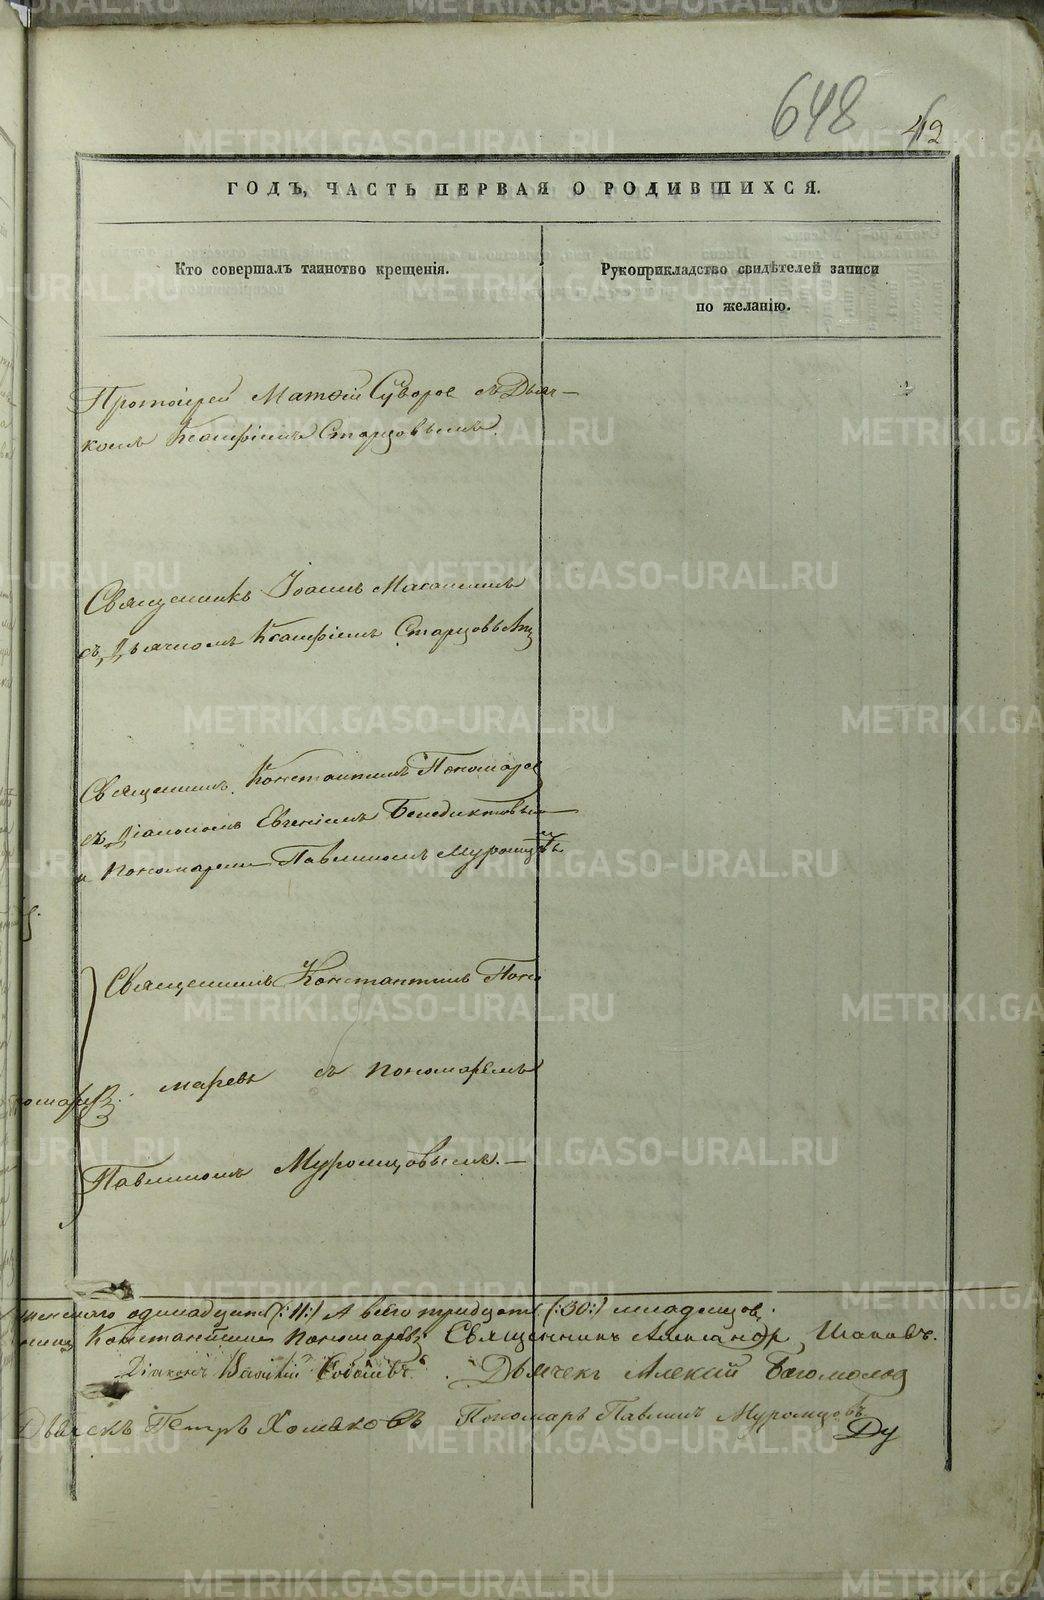 648
42
ГОДЪ, ЧАСТЬ ПЕРВАЯ О РОДИВШИХСЯ.
Кто совершалъ таинство крещенія.
Рукоприкладство свидѣтелей записи
по желанію.
Протоіерей Матѳій Суворов съ Дьяч-
комъ Ксанфіемъ Старцовымъ.
Священникъ Іоаннъ
съ Дьячкомъ Ксанфіемъ Старцовымъ
Священникъ Константинъ Пономарев
съ Діакономъ Евгеніемъ Бенедиктовым
и Пономаремъ Павлиномъ Муромцовы
Священникъ Константинъ Поно
маревъ съ пономаремъ
Павлиномъ Муромцовымъ.—
женскаго одинадцать (:11:) А всего тридцать (:30:) младенцов.
Константинъ Пономаревъ Священникъ Александр
Діаконъ Василій Дьячекъ Алексий Богомолов
Дьячекъ Петръ Хомяковъ Пономарь Павлинъ Муромцовъ
Ду
METRIKI.GASO-URAL.RU